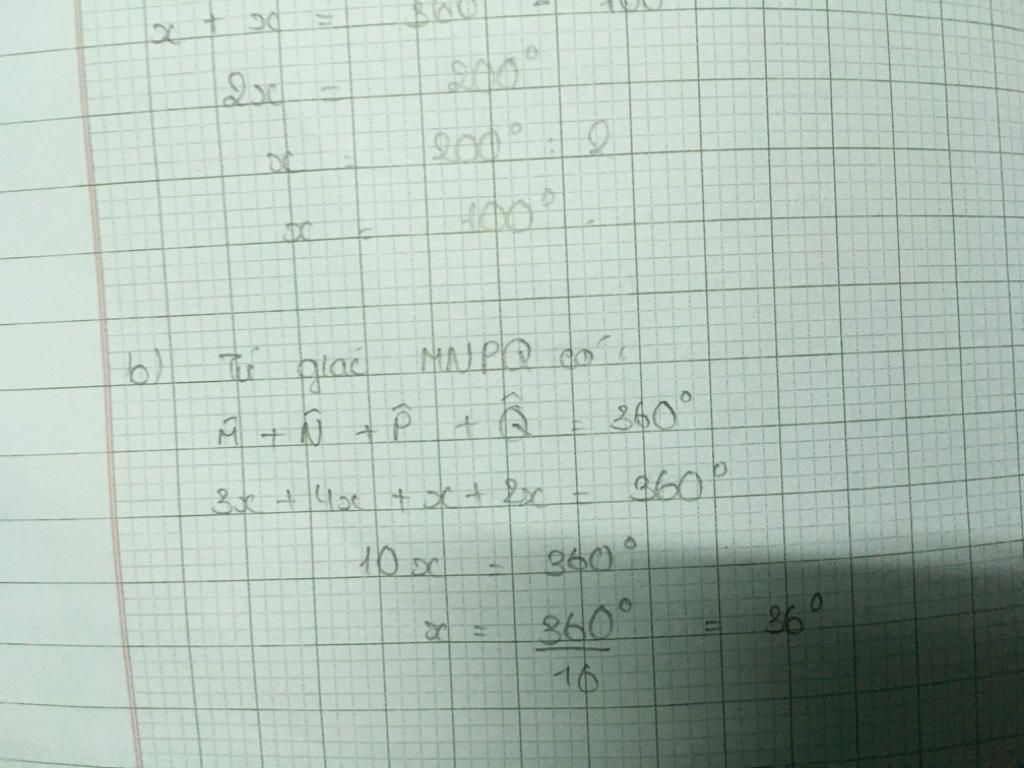 x + x = 360 - 160
2x = 200°
x = 200° : 2
x = 100°.
b) Tứ giác MNPQ có:
M̂ + N̂ + P̂ + Q̂ = 360°
3x + 4x + x + 2x = 360°
10x = 360°
x = 360°/10 = 36°